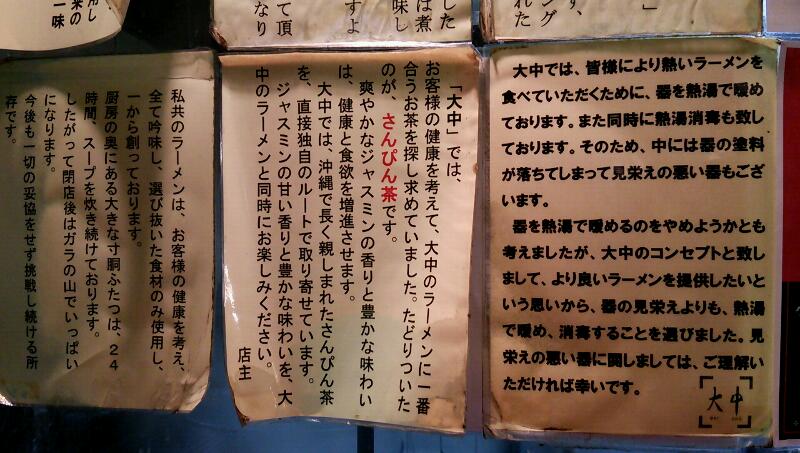 した
は煮
味し
すよ
て頂
なり
」
す、
ング
れた
用し
米の
一味
大中では、皆様により熱いラーメンを
食べていただくために、器を熱湯で暖め
ております。また同時に熱湯消毒も致し
ております。そのため、中には器の塗料
が落ちてしまって見栄えの悪い器もござ
います。
器を熱湯で暖めるのをやめようかとも
考えましたが、大中のコンセプトと致し
まして、より良いラーメンを提供したいと
いう思いから、器の見栄えよりも、熱湯
で暖め、消毒することを選びました。見
栄えの悪い器に関しましては、ご理解い
ただければ幸いです。
大中
「大中」では、
お客様の健康を考えて、大中のラーメンに一番
合うお茶を探し求めていました。たどりついた
のが、さんぴん茶です。
爽やかなジャスミンの香りと豊かな味わい
は、健康と食欲を増進させます。
大中では、沖縄で長く親しまれたさんぴん茶
を、直接独自のルートで取り寄せています。
ジャスミンの甘い香りと豊かな味わいを、大
中のラーメンと同時にお楽しみください。
店主
私共のラーメンは、お客様の健康を考え、
全て吟味し、選び抜いた食材のみ使用し、
一から創っております。
厨房の奥にある大きな寸胴ふたつは、24
時間、スープを炊き続けております。
したがって閉店後はガラの山でいっぱい
になります。
今後も一切の妥協をせず挑戦し続ける所
存です。